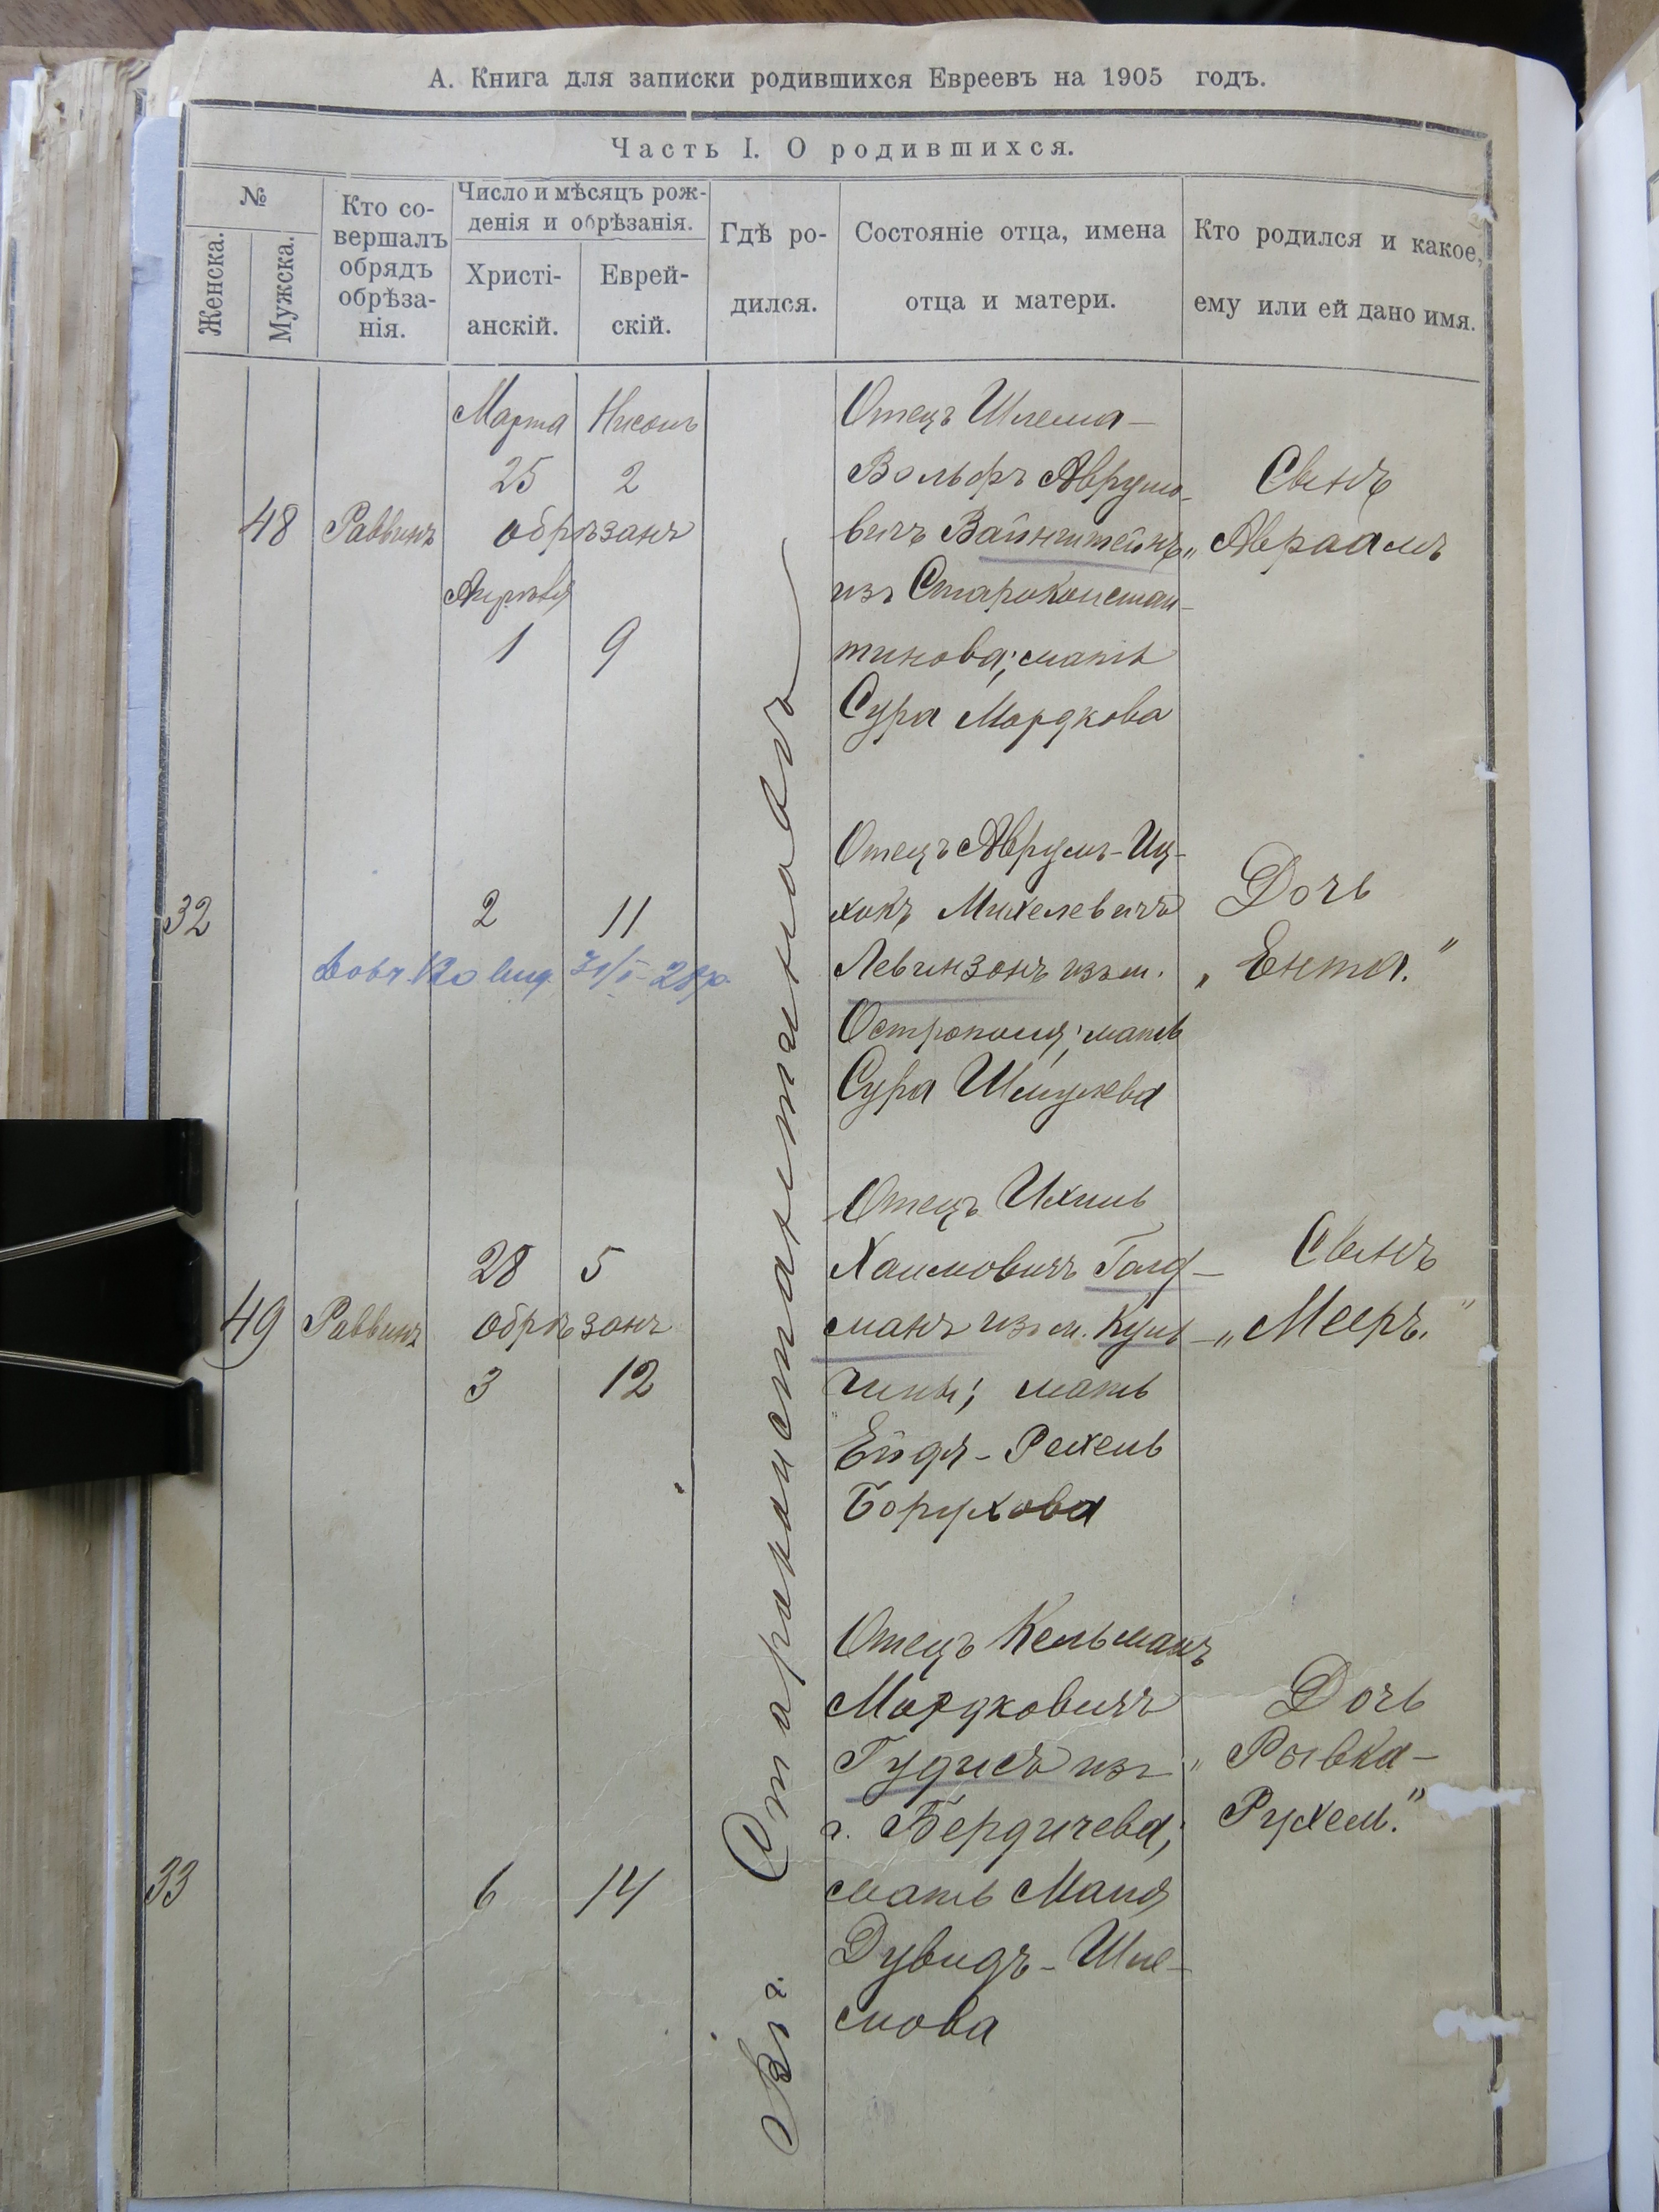 А. Книга для записки родившихся Евреевъ на 1905 годъ.
Часть I. О родившихся.
№
Женска.
Мужска.
Кто со-
вершалъ
обрядъ
обрѣза-
нія.
Число и мѣсяцъ рож-
денія и обрѣзанія.
Христі-
анскій.
Еврей-
скій.
Гдѣ ро-
дился.
Состояніе отца, имена
отца и матери.
Кто родился и какое,
ему или ей дано имя.
Въ г. Староконстантиновѣ
48
Раввинъ
Марта Нисонъ
25 2
обрѣзанъ
Апрѣля
1 9
Отецъ Шлема-
Вольфъ Аврумо-
вичъ Вайнштейнъ
изъ Староконстан-
тинова; мать
Сура Мордкова
Сынъ
„Авраамъ
32
2 11
31/I-28
Отецъ Аврумъ-Иц-
хокъ Михелевичъ
Левинзонъ изъ м.
Острополя; мать
Сура Шмулева
Дочь
„Ента."
49
Раввинъ
28 5
обрѣзанъ
3 12
Отецъ Ихиль
Хаимовичъ Голд-
манъ изъ м. Куль-
чинъ; мать
Ейдя-Рехель
Борухова
Сынъ
„Мееръ."
33
6 14
Отецъ Кельманъ
Мордковичъ
Гудисъ изъ
г. Бердичева;
мать Маня
Дувидъ-Шле-
мова
Дочь
„Рывка-
Рухель."